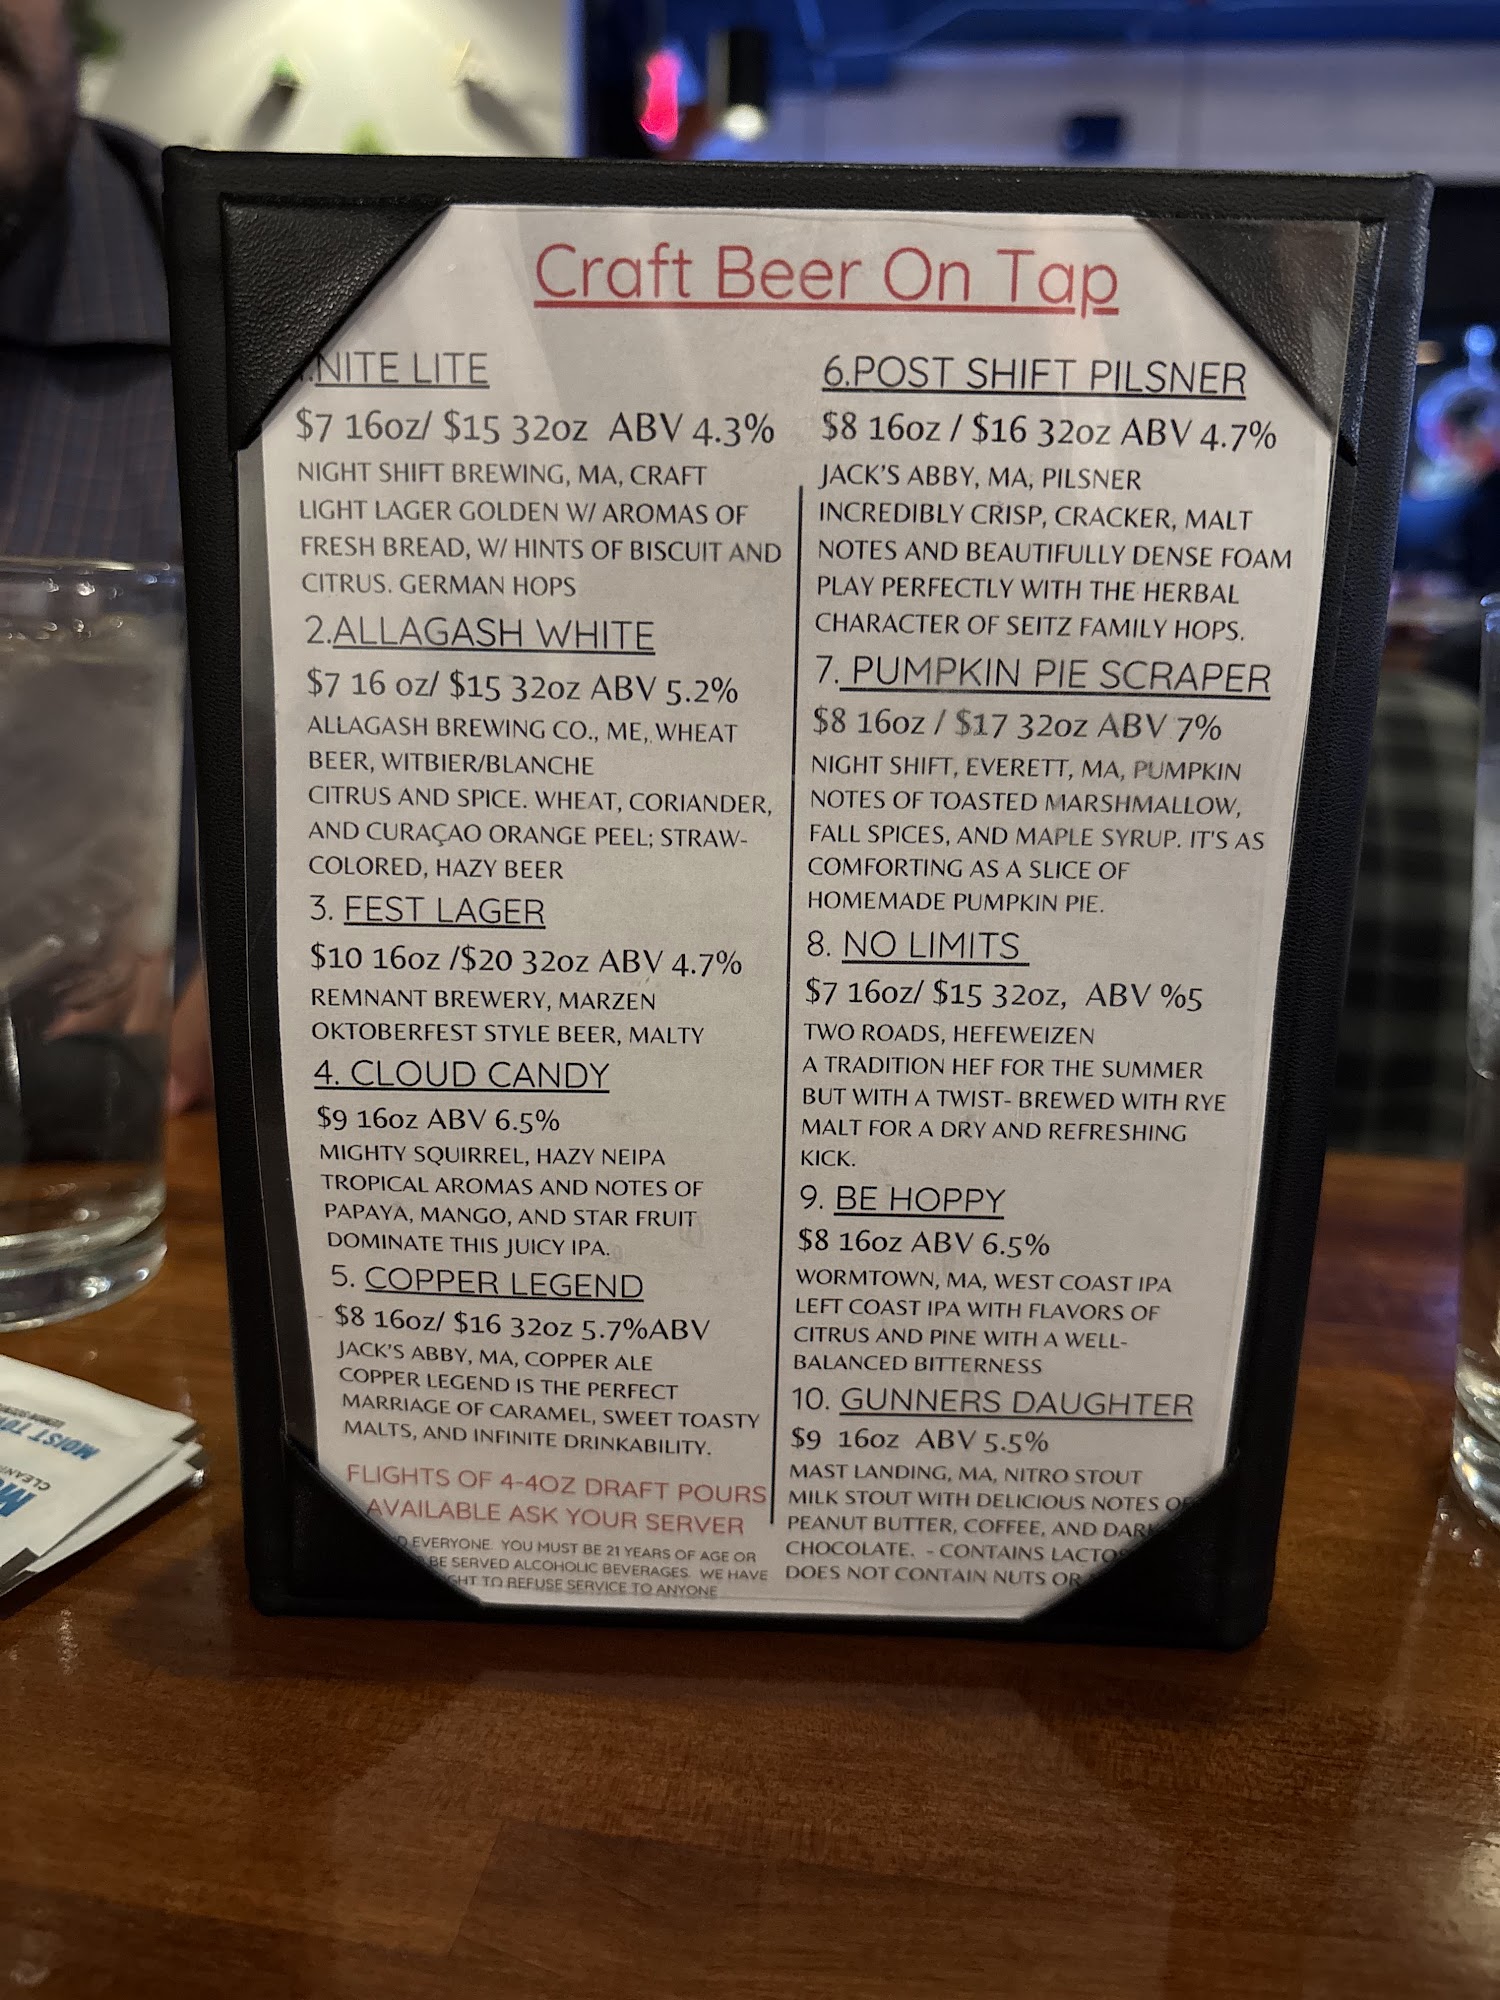 Craft Beer On Tap
.NITE LITE
$7 16oz/ $15 32oz ABV 4.3%
NIGHT SHIFT BREWING, MA, CRAFT
LIGHT LAGER GOLDEN W/ AROMAS OF
FRESH BREAD, W/ HINTS OF BISCUIT AND
CITRUS. GERMAN HOPS
2.ALLAGASH WHITE
$7 16 oz/ $15 32oz ABV 5.2%
ALLAGASH BREWING CO., ME, WHEAT
BEER, WITBIER/BLANCHE
CITRUS AND SPICE. WHEAT, CORIANDER,
AND CURAÇAO ORANGE PEEL; STRAW-
COLORED, HAZY BEER
3. FEST LAGER
$10 16oz /$20 32oz ABV 4.7%
REMNANT BREWERY, MARZEN
OKTOBERFEST STYLE BEER, MALTY
4. CLOUD CANDY
$9 16oz ABV 6.5%
MIGHTY SQUIRREL, HAZY NEIPA
TROPICAL AROMAS AND NOTES OF
PAPAYA, MANGO, AND STAR FRUIT
DOMINATE THIS JUICY IPA.
5. COPPER LEGEND
$8 16oz/ $16 32oz 5.7%ABV
JACK'S ABBY, MA, COPPER ALE
COPPER LEGEND IS THE PERFECT
MARRIAGE OF CARAMEL, SWEET TOASTY
MALTS, AND INFINITE DRINKABILITY.
FLIGHTS OF 4-4OZ DRAFT POURS
AVAILABLE ASK YOUR SERVER
EVERYONE. YOU MUST BE 21 YEARS OF AGE OR
BE SERVED ALCOHOLIC BEVERAGES. WE HAVE
TO REFUSE SERVICE TO ANYONE
6.POST SHIFT PILSNER
$8 16oz / $16 32oz ABV 4.7%
JACK'S ABBY, MA, PILSNER
INCREDIBLY CRISP, CRACKER, MALT
NOTES AND BEAUTIFULLY DENSE FOAM
PLAY PERFECTLY WITH THE HERBAL
CHARACTER OF SEITZ FAMILY HOPS.
7. PUMPKIN PIE SCRAPER
$8 16oz / $17 32oz ABV 7%
NIGHT SHIFT, EVERETT, MA, PUMPKIN
NOTES OF TOASTED MARSHMALLOW,
FALL SPICES, AND MAPLE SYRUP. IT'S AS
COMFORTING AS A SLICE OF
HOMEMADE PUMPKIN PIE.
8. NO LIMITS
$7 16oz/ $15 32oz, ABV %5
TWO ROADS, HEFEWEIZEN
A TRADITION HEF FOR THE SUMMER
BUT WITH A TWIST- BREWED WITH RYE
MALT FOR A DRY AND REFRESHING
KICK.
9. BE HOPPY
$8 16oz ABV 6.5%
WORMTOWN, MA, WEST COAST IPA
LEFT COAST IPA WITH FLAVORS OF
CITRUS AND PINE WITH A WELL-
BALANCED BITTERNESS
10. GUNNERS DAUGHTER
$9 16oz ABV 5.5%
MAST LANDING, MA, NITRO STOUT
MILK STOUT WITH DELICIOUS NOTES OF
PEANUT BUTTER, COFFEE, AND DARK
CHOCOLATE. - CONTAINS
DOES NOT CONTAIN NUTS OR
MOIST